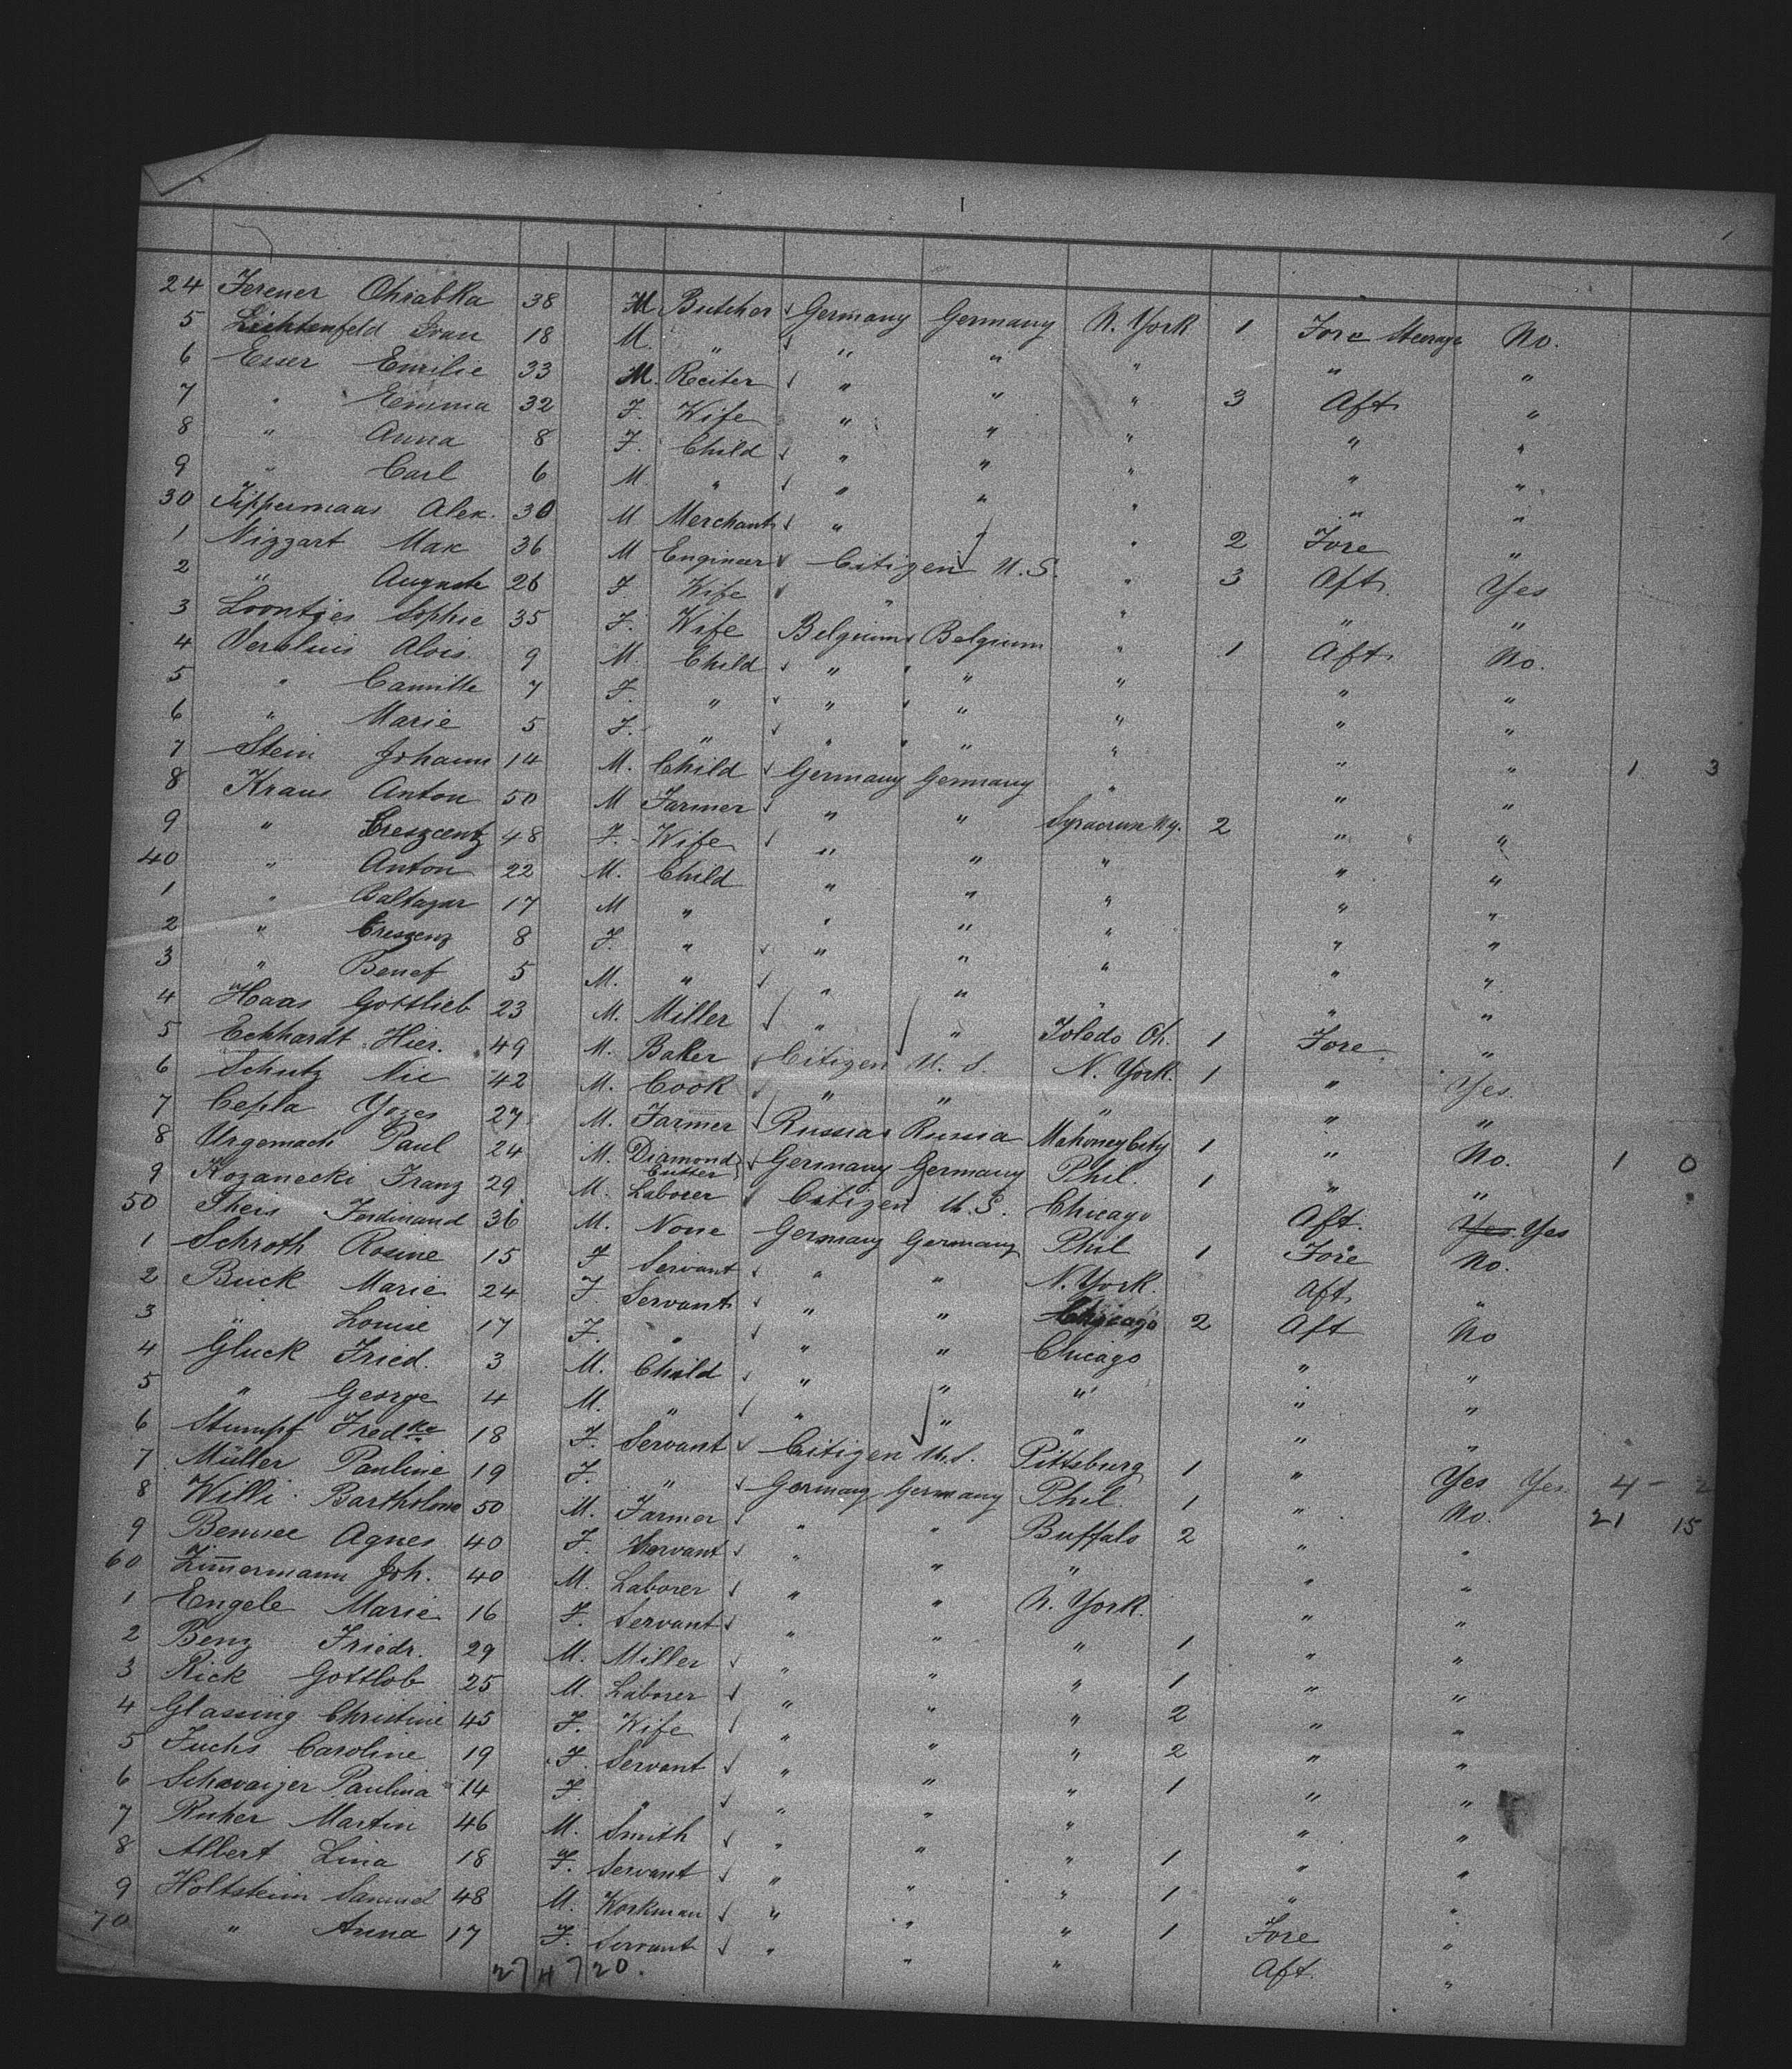 24 Ferener Chrabka 38 M Butcher Germany Germany N. York 1 Fore Steerage No.
5 Lichtenfeld Ivan 18 M. " " " " " "
6 Esser Emilie 33 M. Reiter " " " 3 Aft "
7 " Emma 32 F. Wife " " " " "
8 " Anna 8 F. Child " " " " "
9 " Carl 6 M " " " " " "
30 Tippermaas Alex. 30 M Merchant " 2 Fore "
1 Nizzart Max 36 M Engineer Citizen U.S. " 3 Aft. Yes
2 " Auguste 26 F. Wife " " " "
3 Loontjes Sophie 35 F. Wife Belgium Belgium " 1 Aft. No.
4 Alois 9 M. Child " " " " "
5 " Camille 7 F. " " " " " "
6 " Marie 5 F. " " " " " " 1 3
7 Stein Johann 14 M. Child Germany Germany " " "
8 Kraus Anton 50 M Farmer " " Syracuse N.y. 2 " "
9 " Creszentz 48 F. Wife " " " " "
40 " Anton 22 M. Child " " " " "
1 " Baltazar 17 M " " " " " "
2 " Creszenz 8 F. " " " " " "
3 " Benef 5 M. " " " " " "
4 Haas Gottlieb 23 M. Miller " " Toledo Oh. 1 Fore "
5 Eckhardt Hier. 49 M. Baker Citizen U.S. N. York. 1 " Yes.
6 Schutz Nic 42 M. Cook " " " " "
7 Cepla Yozes 27 M. Farmer Russia Russia Mahoney City 1 " No. 1 0
8 Urgemach Paul 24 M. Diamond Cutter Germany Germany Phil. 1 " "
9 Kozanecki Franz 29 M. Laborer Citizen U.S. Chicago Aft. Yes Yes
50 Theis Ferdinand 36 M. None Germany Germany Phil 1 Fore No.
1 Schroth Rosine 15 F Servant " " N. York. Aft. "
2 Buck Marie 24 F. Servant " " Chicago 2 Aft No
3 " Louise 17 F. " " " Chicago " "
4 Gluck Fried. 3 M. Child " " " " "
5 " George 4 M. " " " " " "
6 Stumpf Fredke 18 F. Servant Citizen U.S. Pittsburg 1 " Yes Yes 4 - 2
7 Müller Pauline 19 F. " Germany Germany Phil 1 " No. 21 15
8 Willi Bartholome 50 M. Farmer " " Buffalo 2 " "
9 Agnes 40 F. Servant " " " " "
60 Zim̅ermann Joh. 40 M. Laborer " " N. York. " "
1 Engele Marie 16 F. Servant " " " 1 " "
2 Benz Friedr. 29 M. Miller " " " 1 " "
3 Rick Gottlob 25 M. Laborer " " " 2 " "
4 Glassing Christine 45 F. Wife " " " 2 " "
5 Fuchs Caroline 19 F. Servant " " " 1 " "
6 Schwaizer Paulina 14 F. " " " " " "
7 Ruher Martin 46 M. Smith " " " 1 " "
8 Albert Lina 18 F. Servant " " " 1 " "
9 Holtsteim Samuel 48 M. Workman " " " 1 Fore "
70 " Anna 17 F. Servant " " " Aft. "
27 4 7 20.